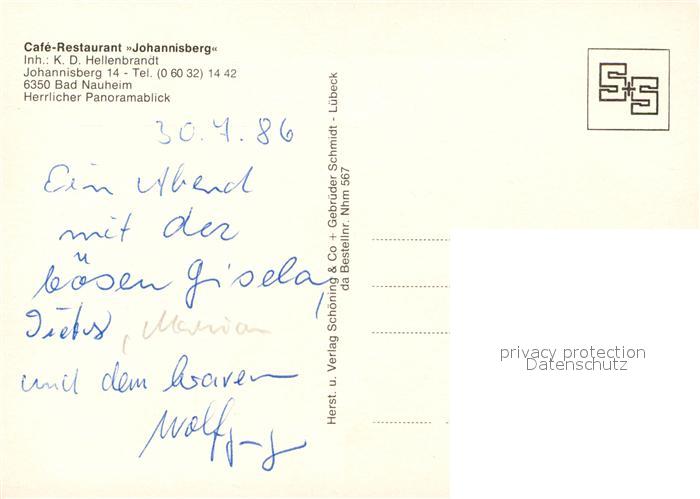 Café-Restaurant »Johannisberg«
Inh.: K. D. Hellenbrandt
Johannisberg 14 - Tel. (0 60 32) 14 42
6350 Bad Nauheim
Herrlicher Panoramablick
30.7.86
Ein Abend
mit der
bösen Gisela,
Dieter, Marian
und dem braven
Wolfgang
Herst. u. Verlag Schöning & Co + Gebrüder Schmidt - Lübeck
da Bestellnr. Nhm 567
S+S
privacy protection
Datenschutz